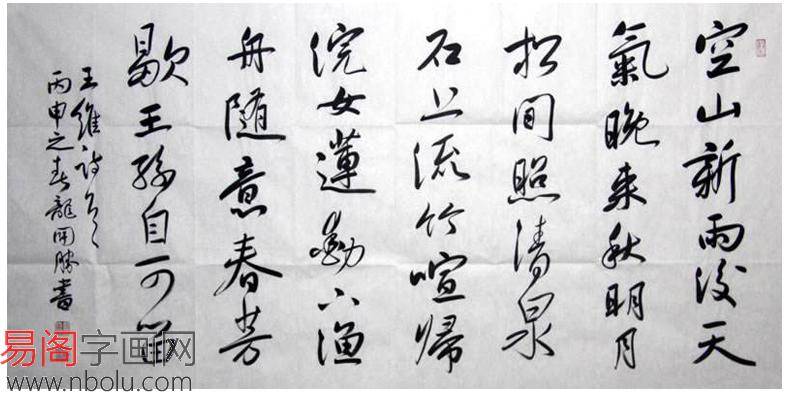 空山新雨後天
氣晚来秋明月
松間照清泉
石上流竹喧歸
浣女蓮動下漁
舟随意春芳
歇王孫自可留
王維詩
丙申之春龍開勝書
易阁字画网
www.nbolu.com